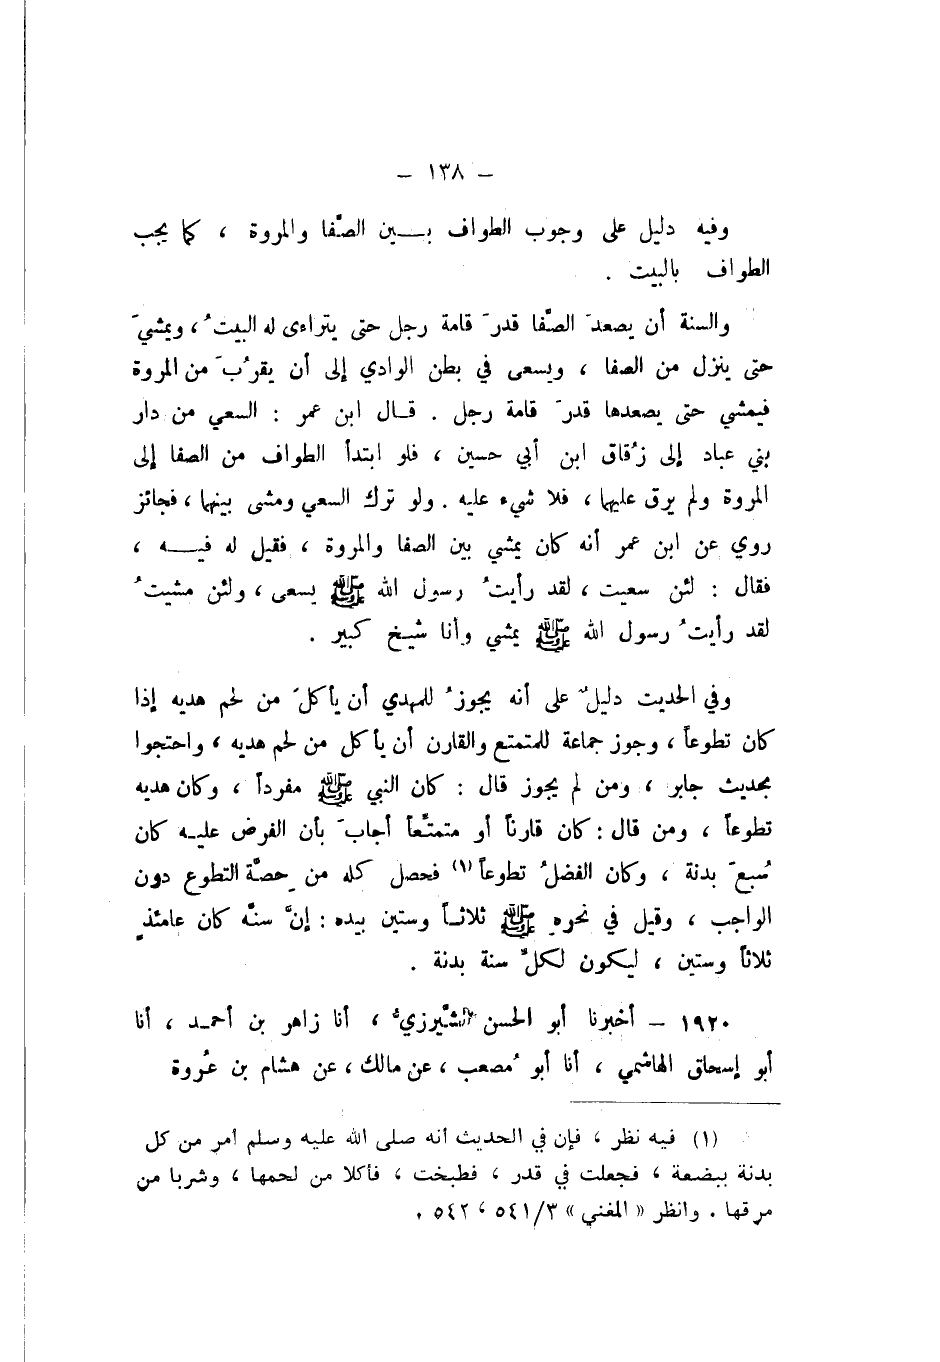 – ١٣٨ –
وفيه دليل على وجوب الطواف بـــين الصَّفا والمروة ، كما يجب
الطواف بالبيت .
والسنة أن يصعدَ الصَّفا قدرَ قامة رجل حتى يتراءى له البيتُ ، ويمشيَ
حتى ينزل من الصفا ، ويسعى في بطن الوادي إلى أن يقرُبَ من المروة
فيمشي حتى يصعدها قدرَ قامة رجل . قـال ابن عمر : السعي من دار
بني عباد إلى زُقاق ابن أبي حسين ، فلو ابتدأ الطواف من الصفا إلى
المروة ولم يرق عليها ، فلا شيء عليه . ولو ترك السعي ومشى بينهما ، فجائز
روي عن ابن عمر أنه كان يمشي بين الصفا والمروة ، فقيل له فيـــه ،
فقال : لئن سعيت ، لقد رأيتُ رسول الله ﷺ يسعى ، ولئن مشيتُ
لقد رأيتُ رسول الله ﷺ يمشي وأنا شيخ كبير .
وفي الحديث دليلٌ على أنه يجوزُ للمهدي أن يأكلَ من لحم هديه إذا
كان تطوعاً ، وجوز جماعة للمتمتع والقارن أن يأكل من لحم هديه ، واحتجوا
بحديث جابر ، ومن لم يجوز قال : كان النبي ﷺ مفرداً ، وكان هديه
تطوعاً ، ومن قال : كان قارناً أو متمتِّعاً أجابَ بأن الفرض عليـه كان
سُبعَ بدنة ، وكان الفضلُ تطوعاً (١) فحصل كله من حصَّة التطوع دون
الواجب ، وقيل في نحرهِ ﷺ ثلاثـاً وستين بيده : إنَّ سنَّه كان عامئذٍ
ثلاثاً وستين ، ليكون لكلِّ سنة بدنة .
١٩٢٠ – أخبرنا أبو الحسن الشِّيرزيُّ ، أنا زاهر بن أحمـد ، أنا
أبو إسحاق الهاشمي ، أنا أبو مُصعب ، عن مالك ، عن هشام بن عُروة
(١) فيه نظر ، فإن في الحديث أنه صلى الله عليه وسلم أمر من كل
بدنة ببضعة ، فجعلت في قدر ، فطبخت ، فأكلا من لحمها ، وشربا من
مرقها . وانظر « المغني » ٥٤١/٣ ، ٥٤٢ .